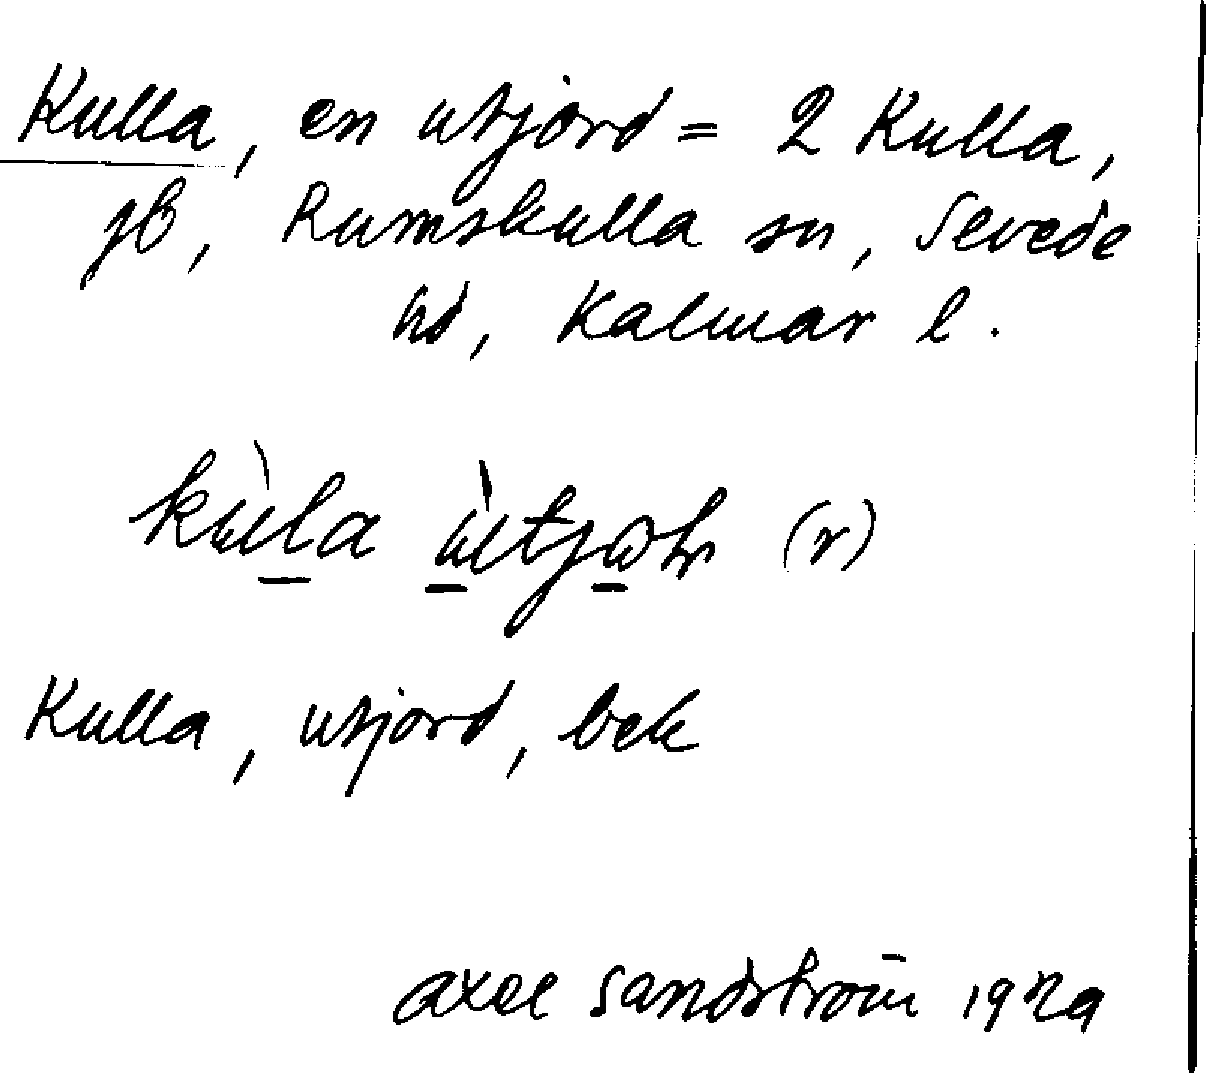 Kulla, en utjord = 2 Kulla,
jb, Rumskulla sn, Sevede
hd, Kalmar l.
(r)
Kulla, utjord, bek
Axel Sandström 1929